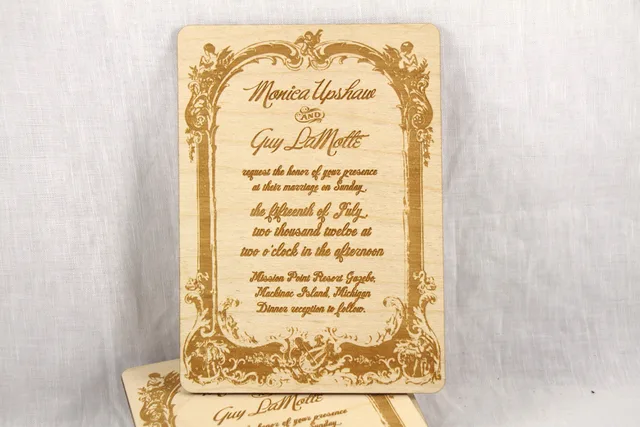 Monica Upshaw
AND
Guy LaMotte
request the honor of your presence
at their marriage on Sunday
the fifteenth of July
two thousand twelve at
two o'clock in the afternoon
Mission Point Resort Gazebo,
Mackinac Island, Michigan
Dinner reception to follow.
Guy LaMotte
honor of your presence
Sunday